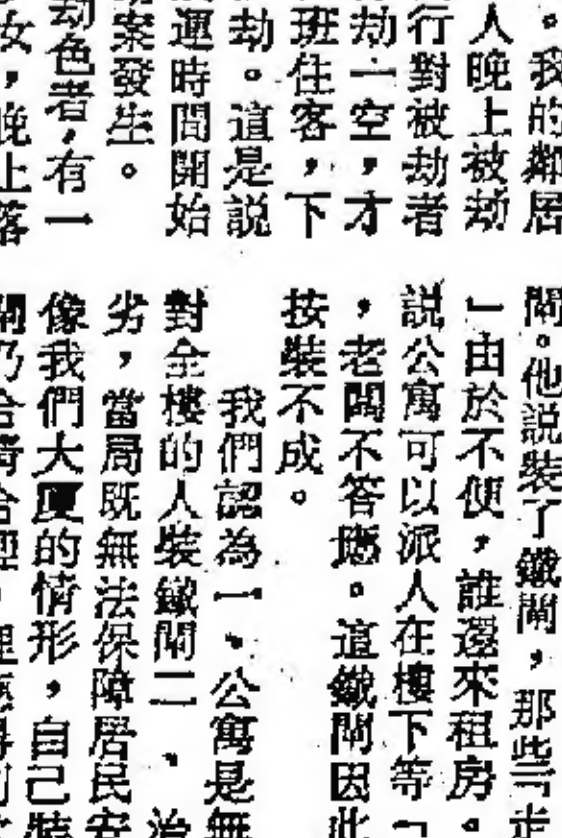 。我的鄰居
人晚上被劫
行對被劫者
劫一空，才
班住客，下
劫。這是說
運時間開始
案發生。
劫色者，有一
女，晚上落
閘。他說裝了鐵閘，那些「
」由於不便，誰還來租房。
說公寓可以派人在樓下等「
，老闆不答應。這鐵閘因此
按裝不成。
我們認為一、公寓是無
對全樓的人裝鐵閘二、治
劣，當局既無法保障居民安
像我們大廈的情形，自己裝
閘乃合情合理。